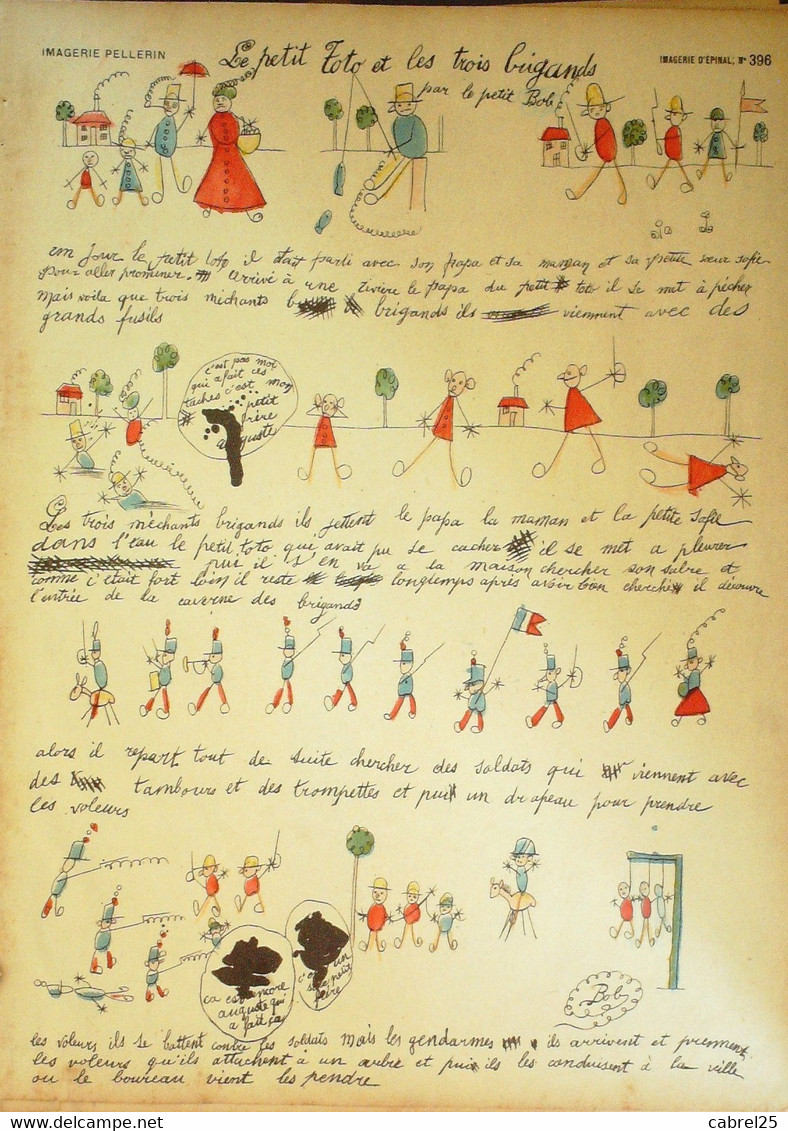 IMAGERIE PELLERIN
Le petit Toto et les trois brigands
IMAGERIE D'ÉPINAL, N° 396
par le petit Bob
un jour le petit toto il était parti avec son papa et sa maman et sa petite sœur sofie
pour aller promener. arrivé à une rivière le papa du petit toto il se met à pécher
mais voila que trois méchants brigands ils viennent avec des
grands fusils
c'est pas moi
qui a fait ces
taches c'est mon
petit
frère
auguste
Les trois méchants brigands ils jettent le papa la maman et la petite Sofie
dans l'eau le petit toto qui avait pu se cacher il se met a pleurer
puis il s'en va a la maison chercher son sabre et
comme c'était fort loin il reste longtemps après avoir bon cherché il découvre
l'entrée de la caverne des brigands
alors il repart tout de suite chercher des soldats qui viennent avec
des tambours et des trompettes et puis un drapeau pour prendre
les voleurs
ça est encore
auguste qui
a fait ça
c'est un
sale petit
frère
Bob
les voleurs ils se battent contre les soldats mais les gendarmes ils arrivent et prennent
les voleurs qu'ils attachent à un arbre et puis ils les conduisent à la ville
ou le boureau vient les pendre
cabrel25